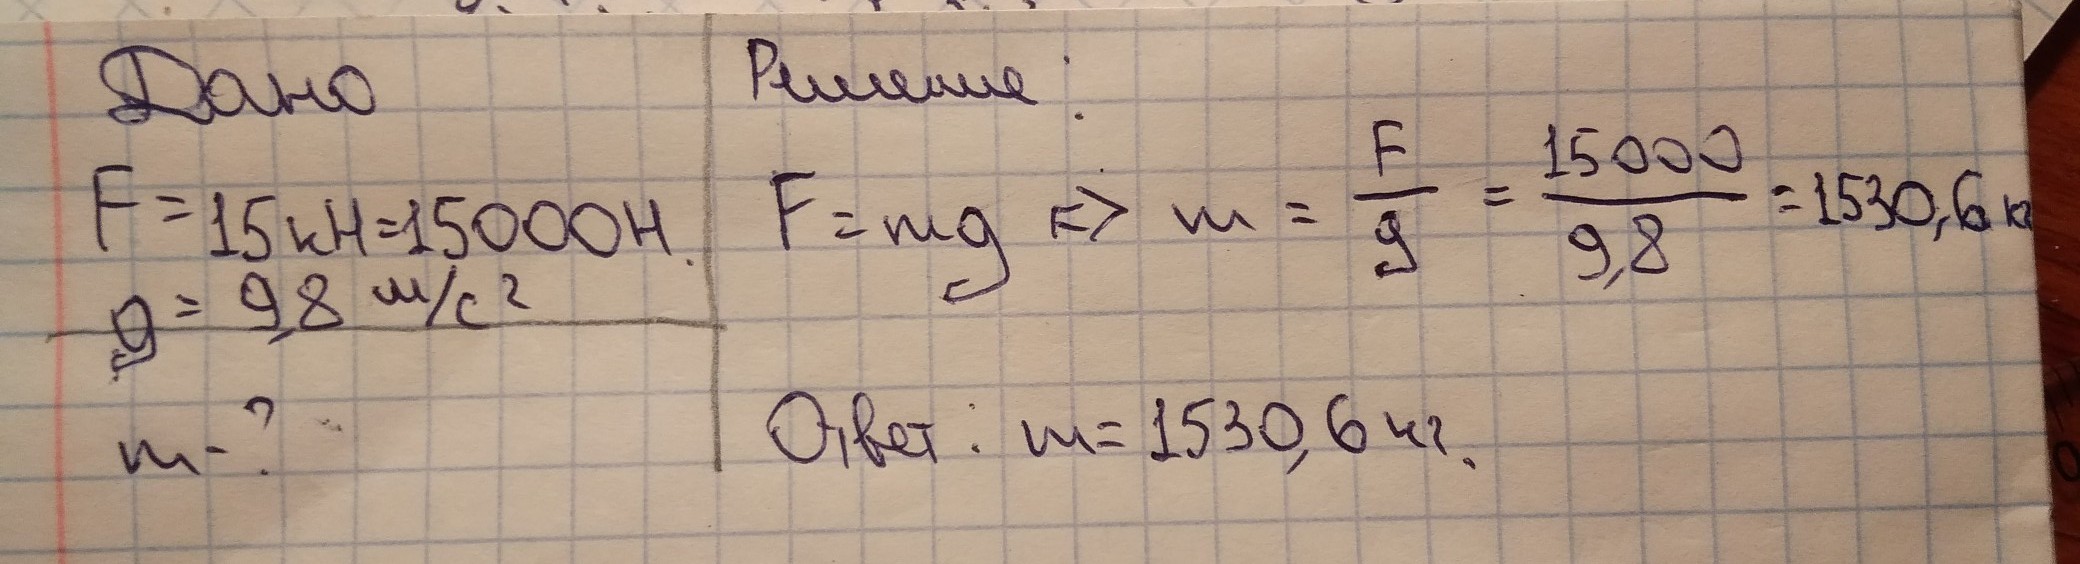 Дано
F = 15 кН = 15000 Н.
g = 9,8 м/с²
m - ?
Решение:
F = mg <=> m = F/g = 15000/9,8 = 1530,6 кг
Ответ: m = 1530,6 кг.